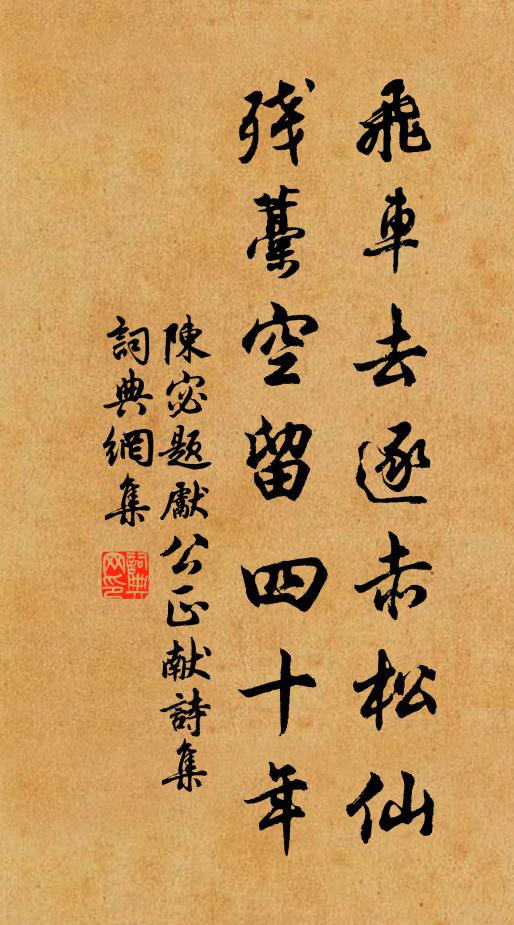 飛車去逐赤松仙
残藁空留四十年
陳宓題獻公正献詩集
詞典網集
詞典網印